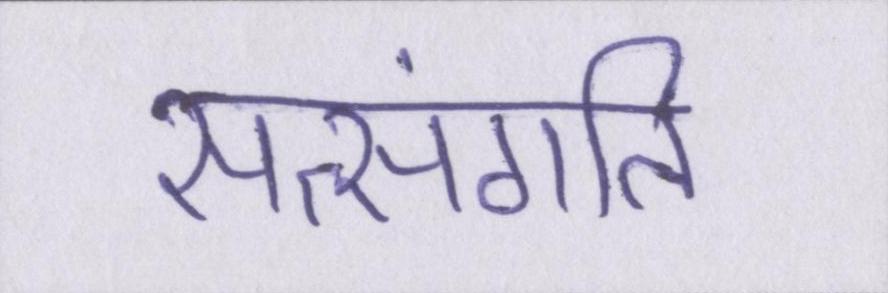 सत्संगति